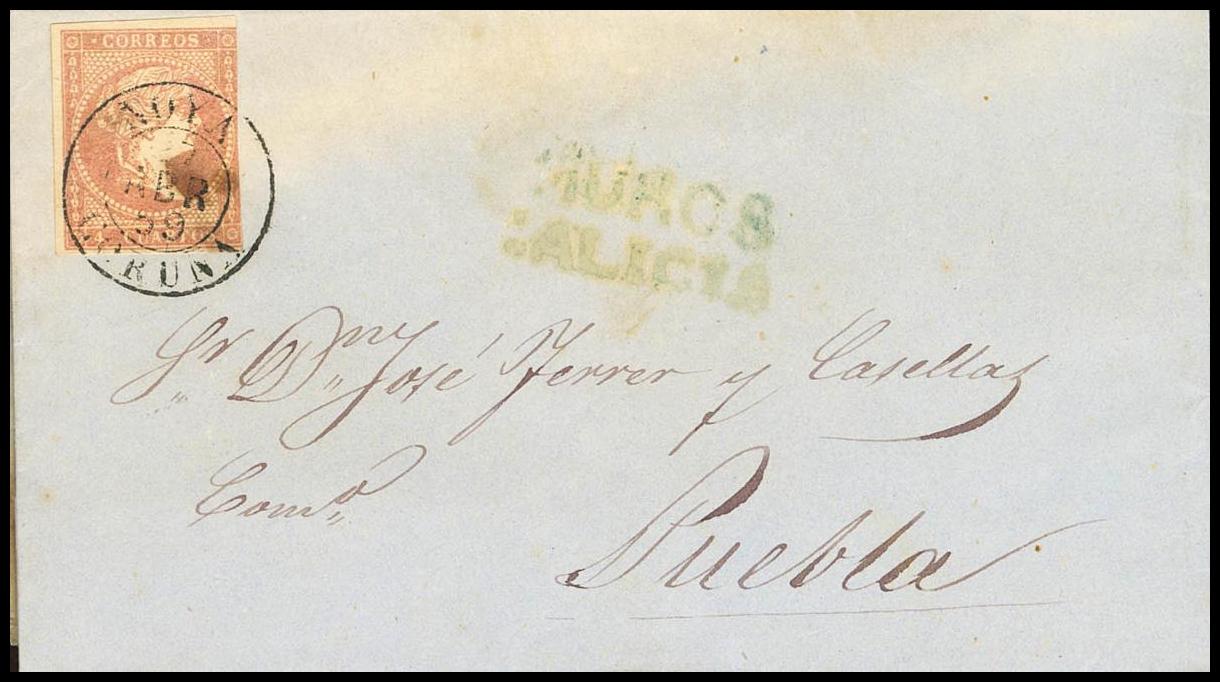 CORREOS
NOYA
ABR
59
CORUÑA
4 CUARTOS
MUROS
GALICIA
Sr. Dn. José Ferrer y Casellas
Como.
Puebla